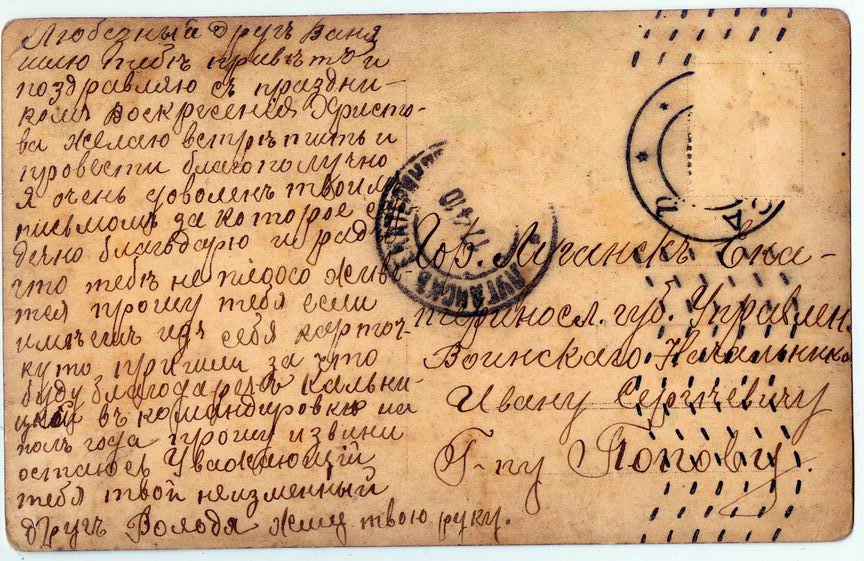 Любезный другъ Ваня
шлю тебѣ привѣтъ и
поздравляю съ праздни-
комъ Воскресенія Христо-
ва желаю встрѣтить и
провести благополучно
я очень доволенъ твоимъ
письмомъ за которое с
дечно благодарю и радъ
что тебѣ не плохо живе
тся прошу тебя если
имѣешь изъ себя карточ-
ку то пришли за что
буду благодаренъ Кальни-
цкій въ командировкѣ на
полъ года прошу извини
остаюсь Уважающій
тебя твой неизменный
другъ Володя жму твою руку.
ЛУГАНСКЪ ЕКАТЕРИНОСЛАВ
17 4 10
Гор. Луганскъ Ека-
териносл. губ. Управлен.
Воинскаго Начальника
Ивану Сергѣевичу
Г-ну Попову.